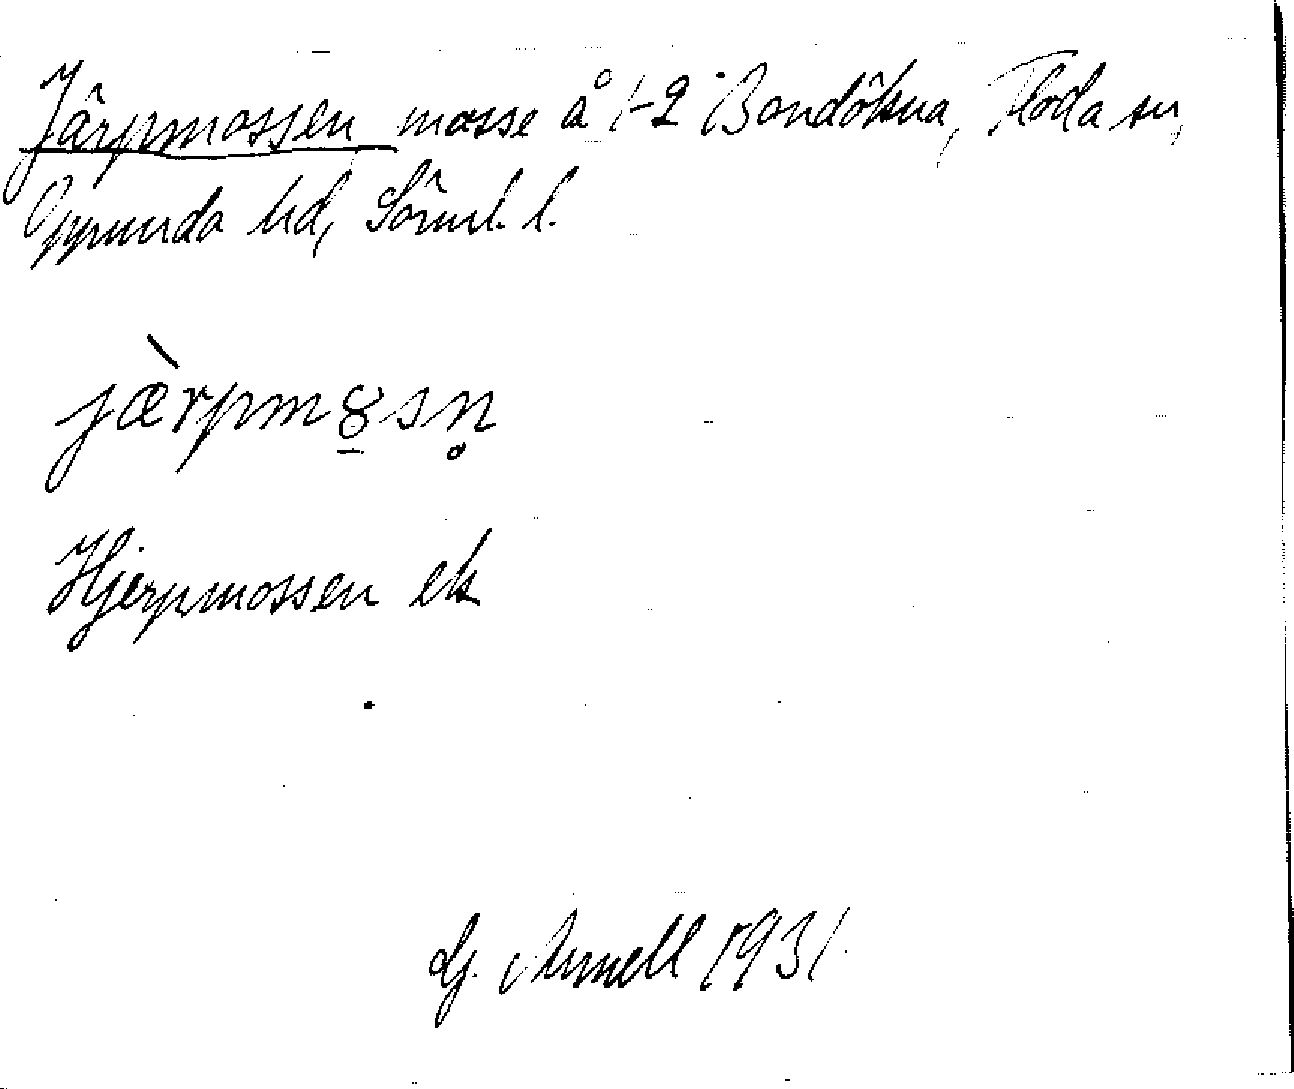 Järpmossen mosse å 1-2 Bondökna, Floda sn,
Oppunda hd, Söderml. l.
jæ̀rpmo̱sn̥
Hjerpmossen ek
G. Arnell 1931.